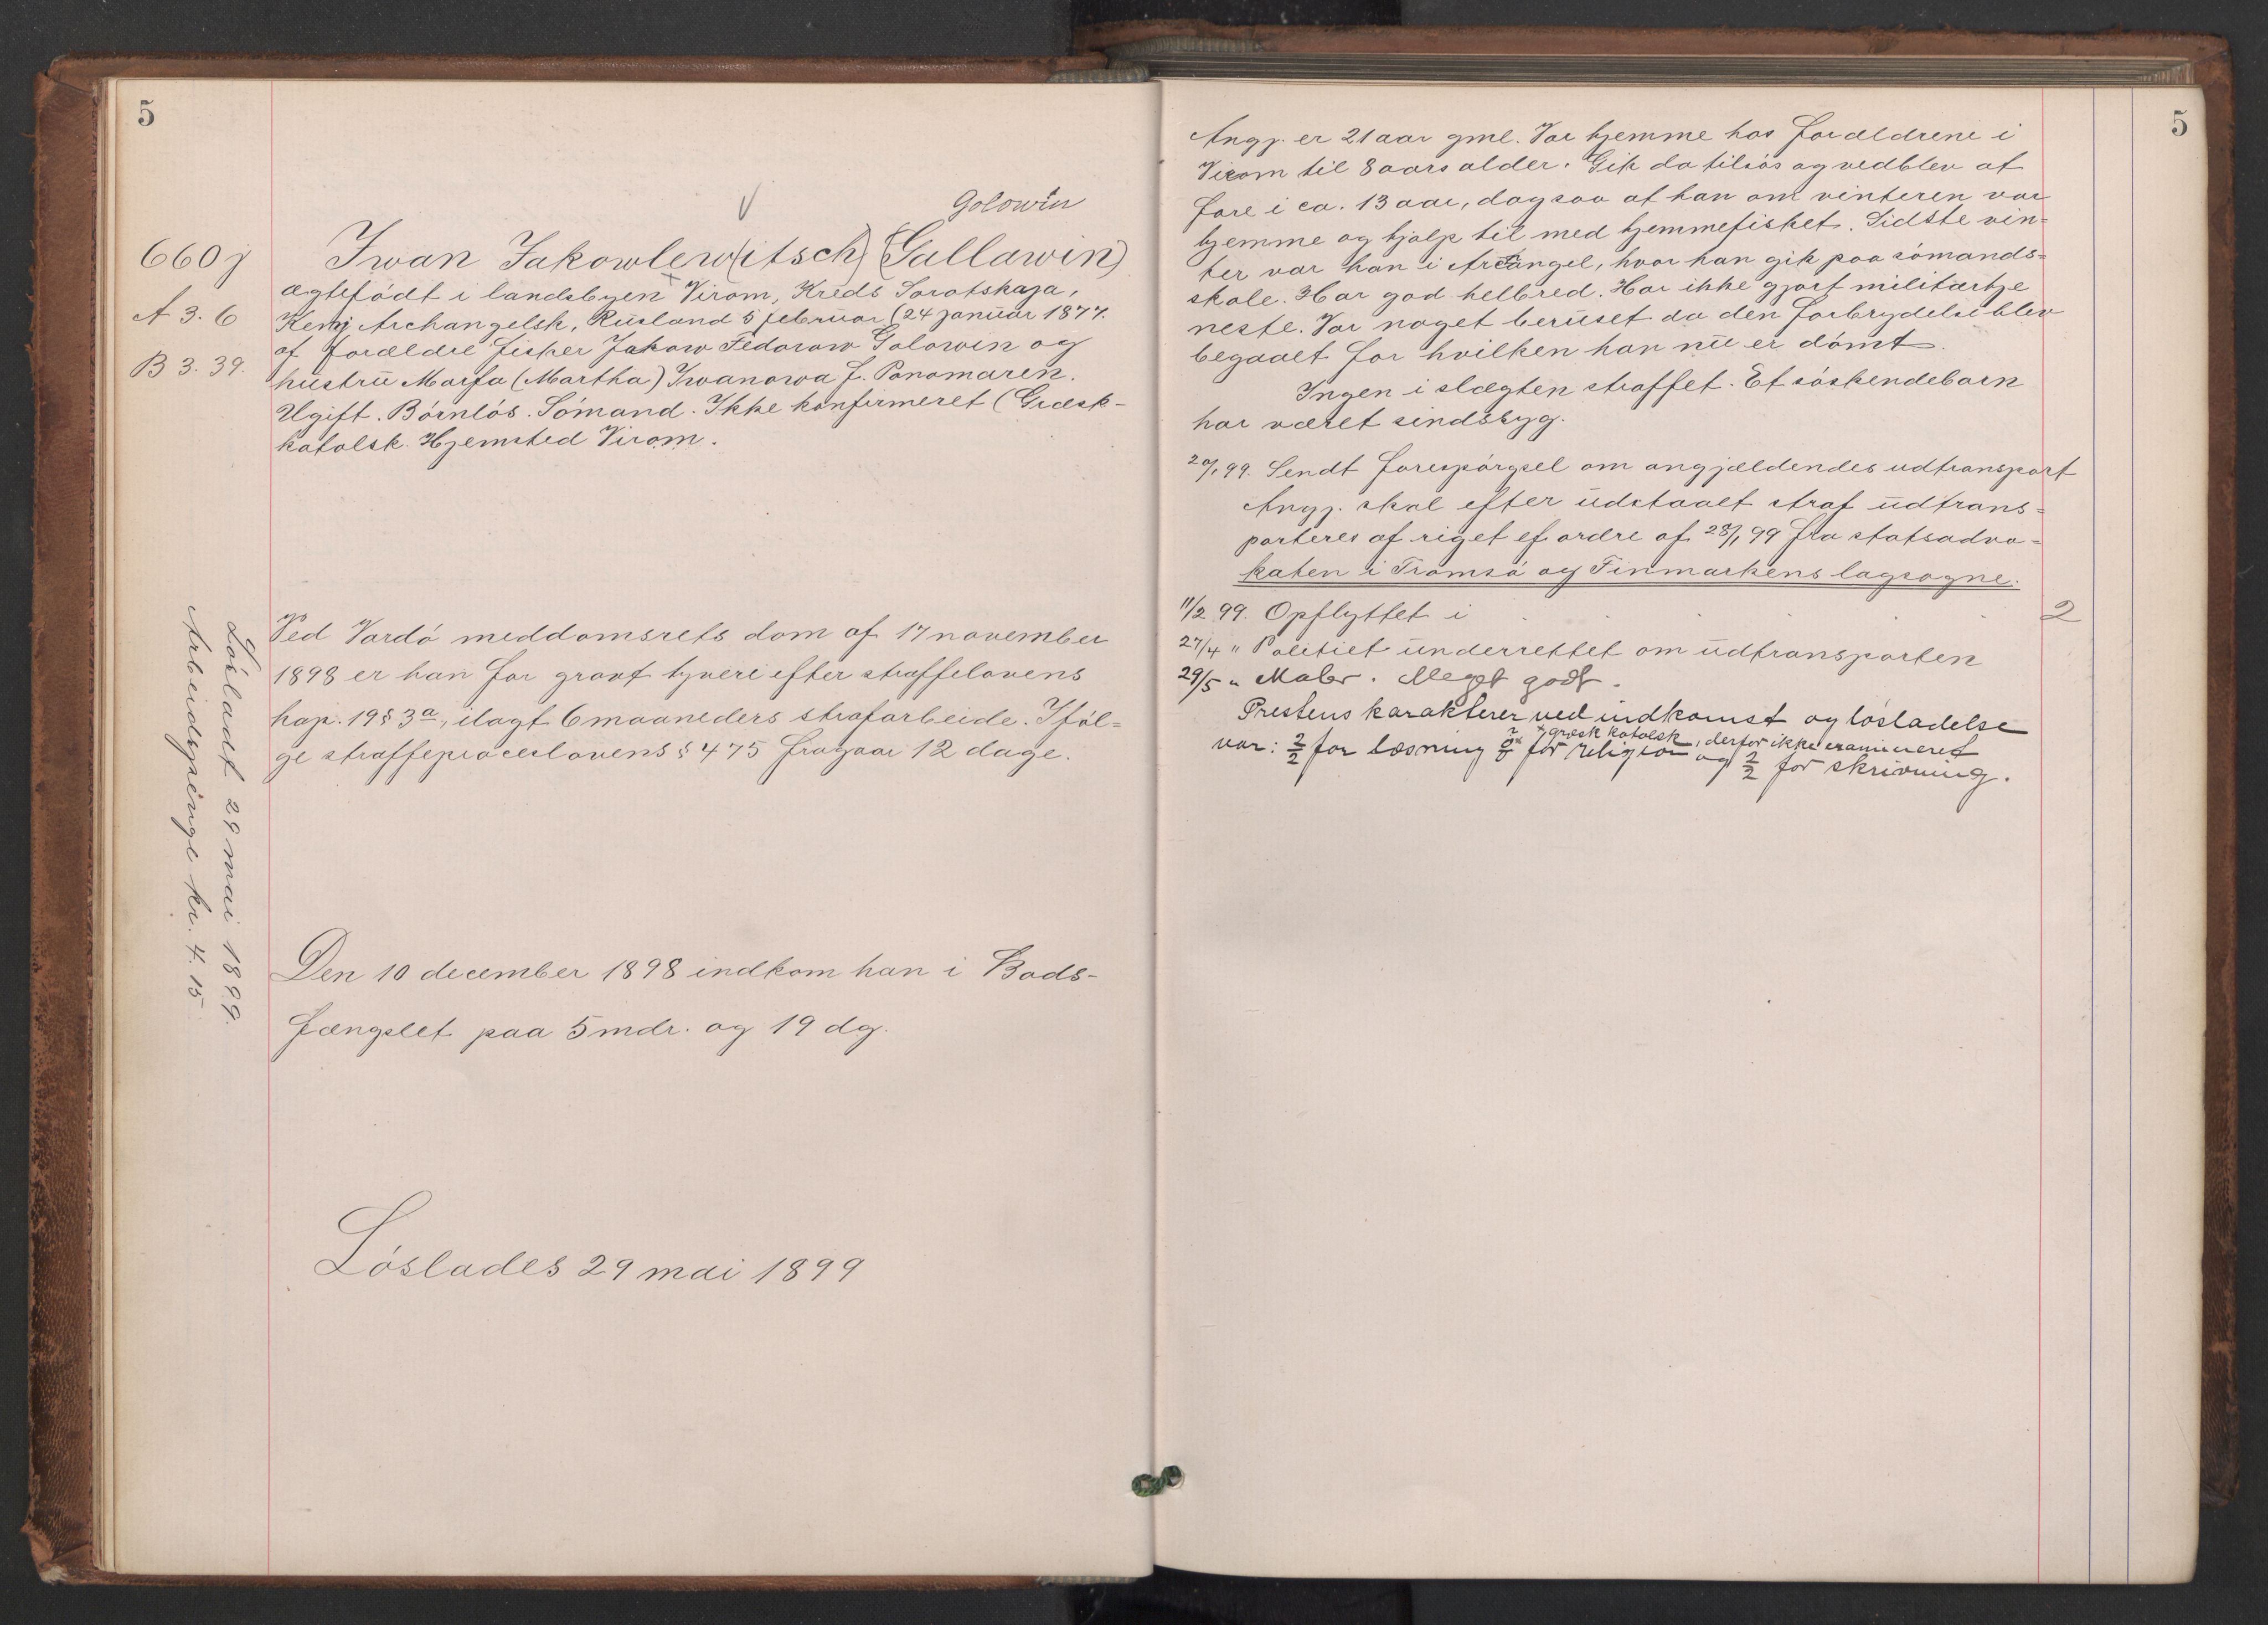 5
Golowin
660 j
Iwan Jakowlew(itsch) (Gallawin)
A 3. 6
B 3. 39.
ægtefödt i landsbyen Virom, Kreds Sorotskaja,
Kemj Archangelsk, Rusland 5 februar (24 januar 1877.
af forældre fisker Jakow Fedorow Golowin og
hustru Marfa (Martha) Iwanowa f. Ponomaren.
Ugift. Börnlös. Sömand. Ikke konfirmeret (Græsk-
katolsk. Hjemsted Virom.
Ved Vardö meddomsrets dom af 17 november
1898 er han for grovt tyveri efter straffelovens
kap. 19 § 3 a, ilagt 6 maaneders strafarbeide. Iföl=
ge straffeproceslovens § 475 fragaar 12 dage.
Den 10 december 1898 indkom han i Bods-
fængslet paa 5 mdr. og 19 dg.
Löslades 29 mai 1899
Lösladt 29 mai 1899.
Arbeidspenge kr. 4.15
5
Angj. er 21 aar gml. Var hjemme hos forældrene i
Virom til 8 aars alder. Gik da tilsös og vedblev at
fare i ca. 13 aar, dog saa at han om vinteren var
hjemme og hjalp til med hjemmefisket. Sidste vin=
ter var han i Arcangel, hvor han gik paa sömands=
skole. Har god helbred. Har ikke gjort militærtje
neste. Var noget beruset da den forbrydelse blev
begaaet for hvilken han nu er dömt.
Ingen i slægten straffet. Et söskendebarn
har været sindssyg.
20/1 99. Sendt forespörgsel om angjældendes udtransport
Angj. skal efter udstaaet straf udtrans=
porteres af riget ef. ordre af 28/1 99 fra statsadvo=
katen i Tromsö og Finmarkens lagsogne.
11/2 99. Opflyttet i . . . . 2
27/4 " Politiet underrettet om udtransporten
29/5 " Maler. Meget godt.
Prestens karakterer ved indkomst og lösladelse
x græsk katolsk, derfor ikke examineret
var: 2/2 for læsning 0/0 x for religion og 2/2 for skrivning.